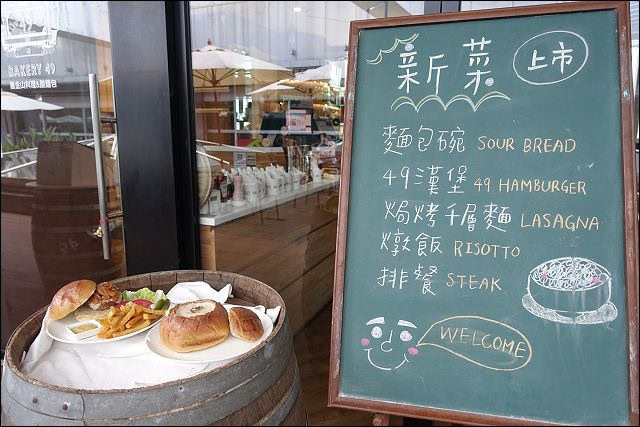 BAKERY 49
新菜
上市
麵包碗 SOUR BREAD
49漢堡 49 HAMBURGER
焗烤千層麵 LASAGNA
燉飯 RISOTTO
排餐 STEAK
WELCOME